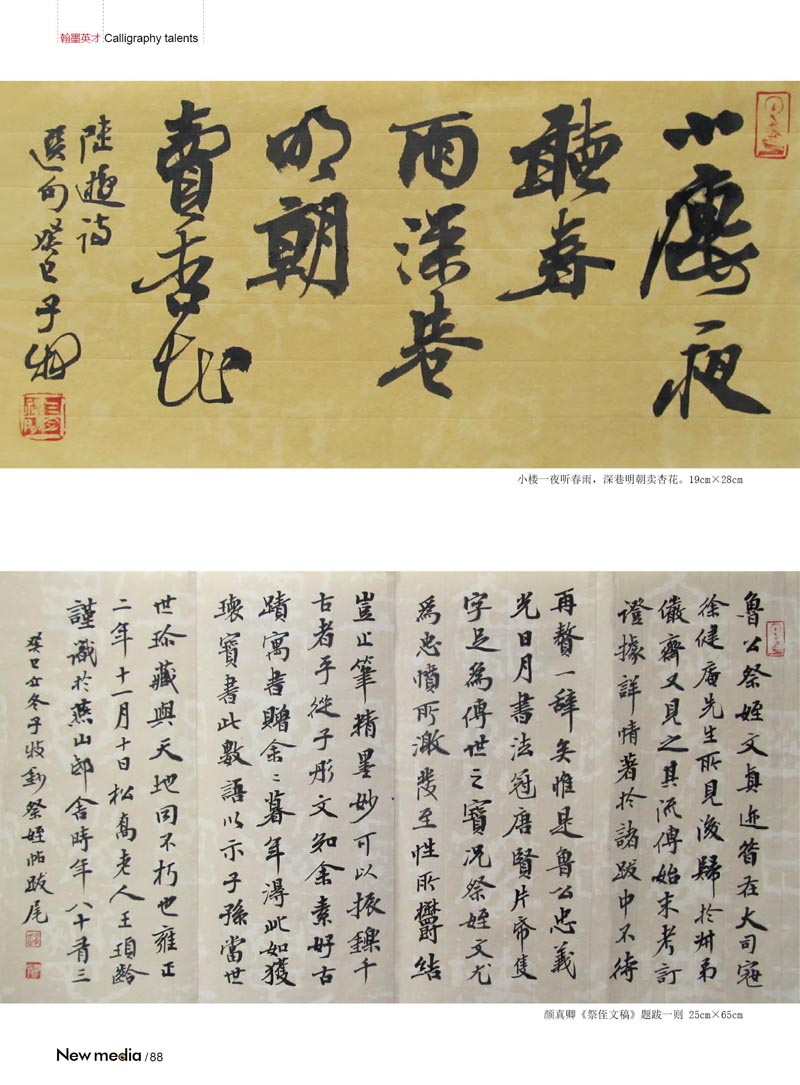 翰墨英才 Calligraphy talents
小廔夜
聽春
雨深巷
明朝
賣杏花
陸游诗
選句癸巳子牧
小楼一夜听春雨，深巷明朝卖杏花。19cm×28cm
魯公祭姪文真迹昔在大司寇
徐健庵先生所見後歸於卅弟
儼齋又見之其流傳始末考訂
證據詳情著於諸跋中不待
再贅一辞矣惟是魯公忠義
光日月書法冠唐賢片帋隻
字足為傳世之寶況祭姪文尤
為忠憤所激發至性所欝結
豈止筆精墨妙可以振鑠千
古者乎從子彤文知余素好古
蹟寓書贈余〻暮年得此如獲
瓌寶書此數語以示子孫當世
世珎藏與天地同不朽也雍正
二年十一月十日松喬老人王頊齡
謹識於燕山邸舍時年八十有三
癸巳立冬子牧鈔祭姪帖跋尾
颜真卿《祭侄文稿》题跋一则 25cm×65cm
New media /88